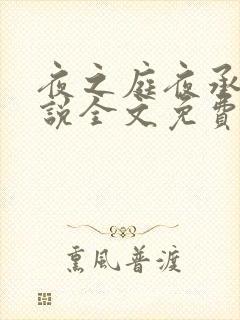 夜之庭夜承
说全文免费
熏風普渡